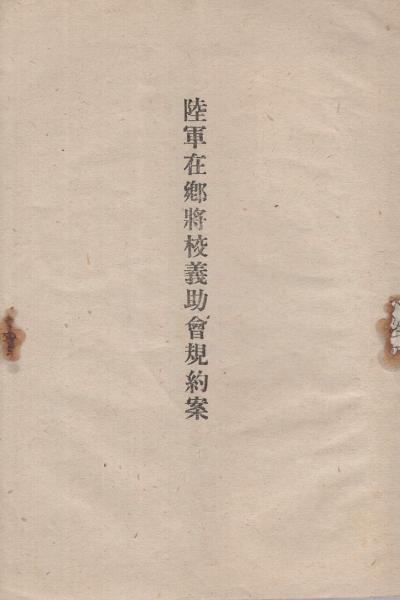 陸軍在鄕將校義助會規約案